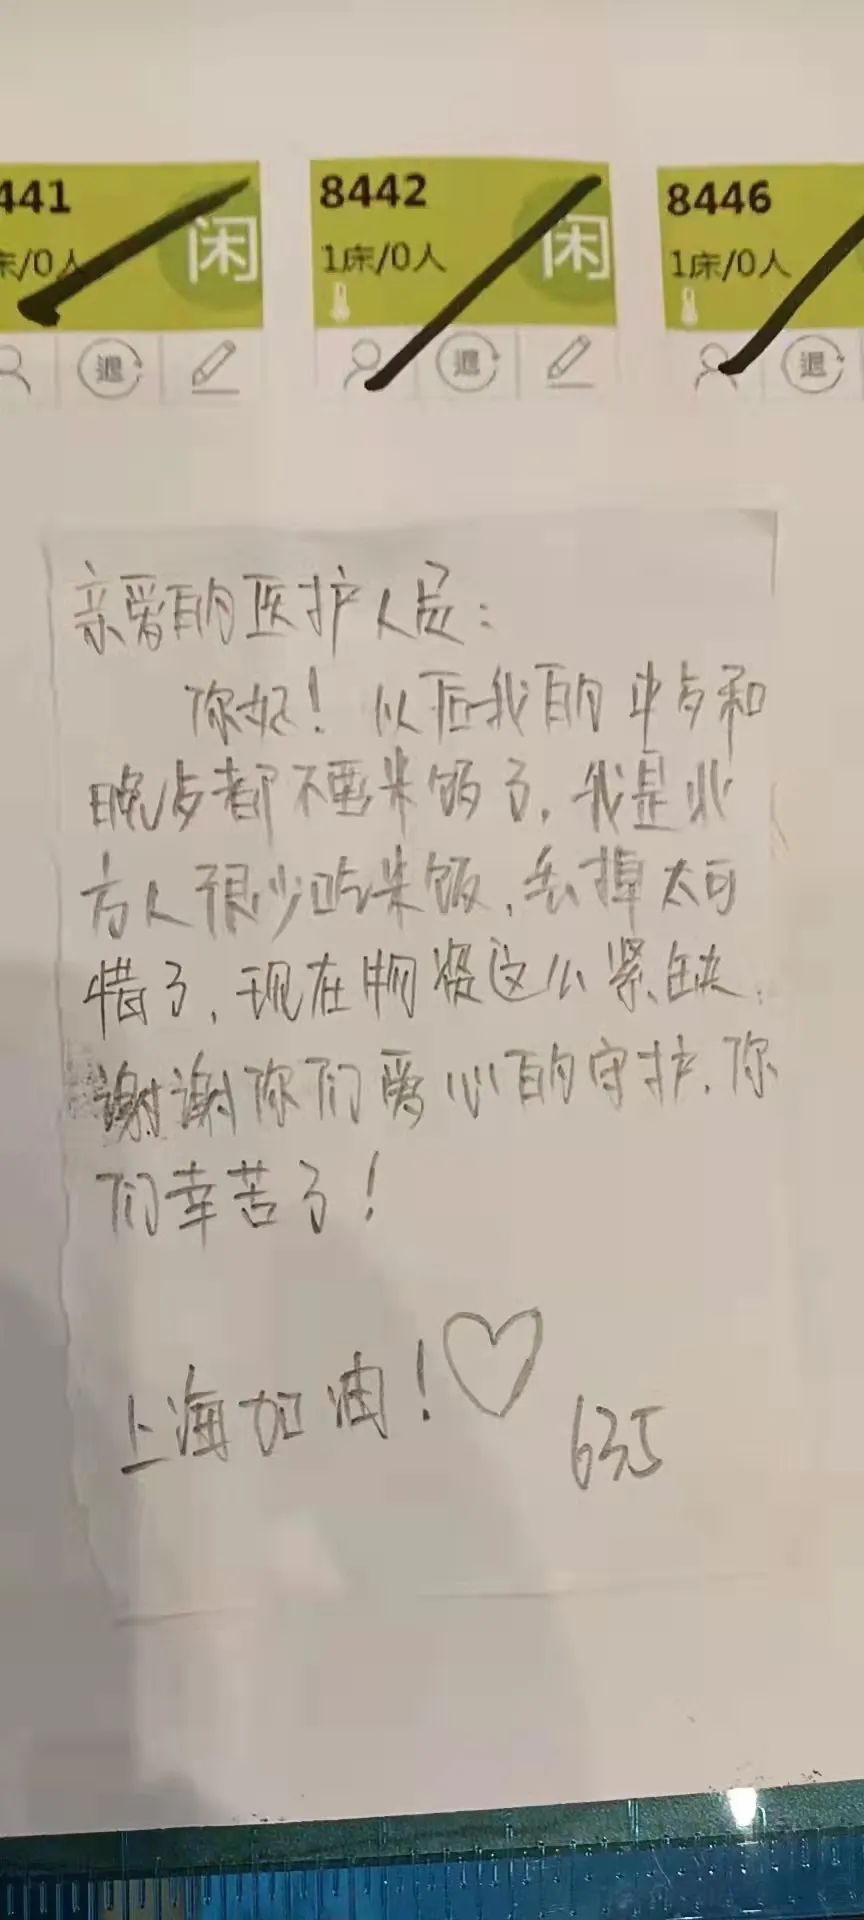 441 8442 8446
床/0人 闲 1床/0人 闲 1床/0人
退 退 退
亲爱的医护人员：
你好！以后我的中餐和
晚餐都不要米饭了，我是北
方人很少吃米饭，丢掉太可
惜了，现在物资这么紧缺，
谢谢你们爱心的守护，你
们辛苦了！
上海加油！♡
635